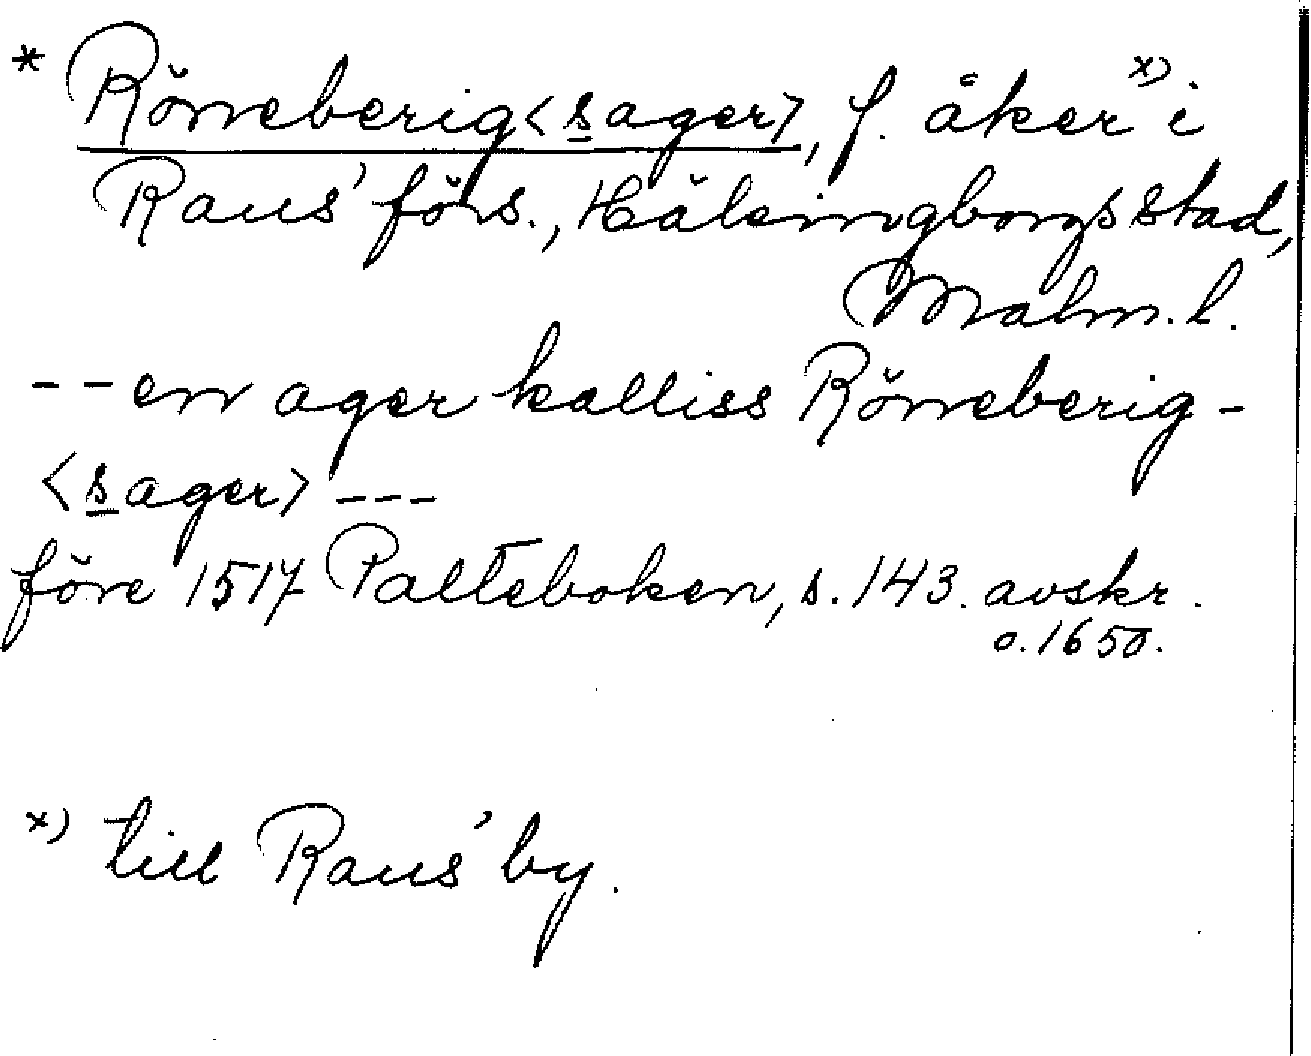 * Rönneberig<sager>, f. åker x) i
Raus' förs., Hälsingborgs stad,
Malm. l.
-- en ager kalliss Rönneberig-
<sager> ---
före 1517 Palteboken, s. 143. avskr.
o. 1650.
x) till Raus' by.